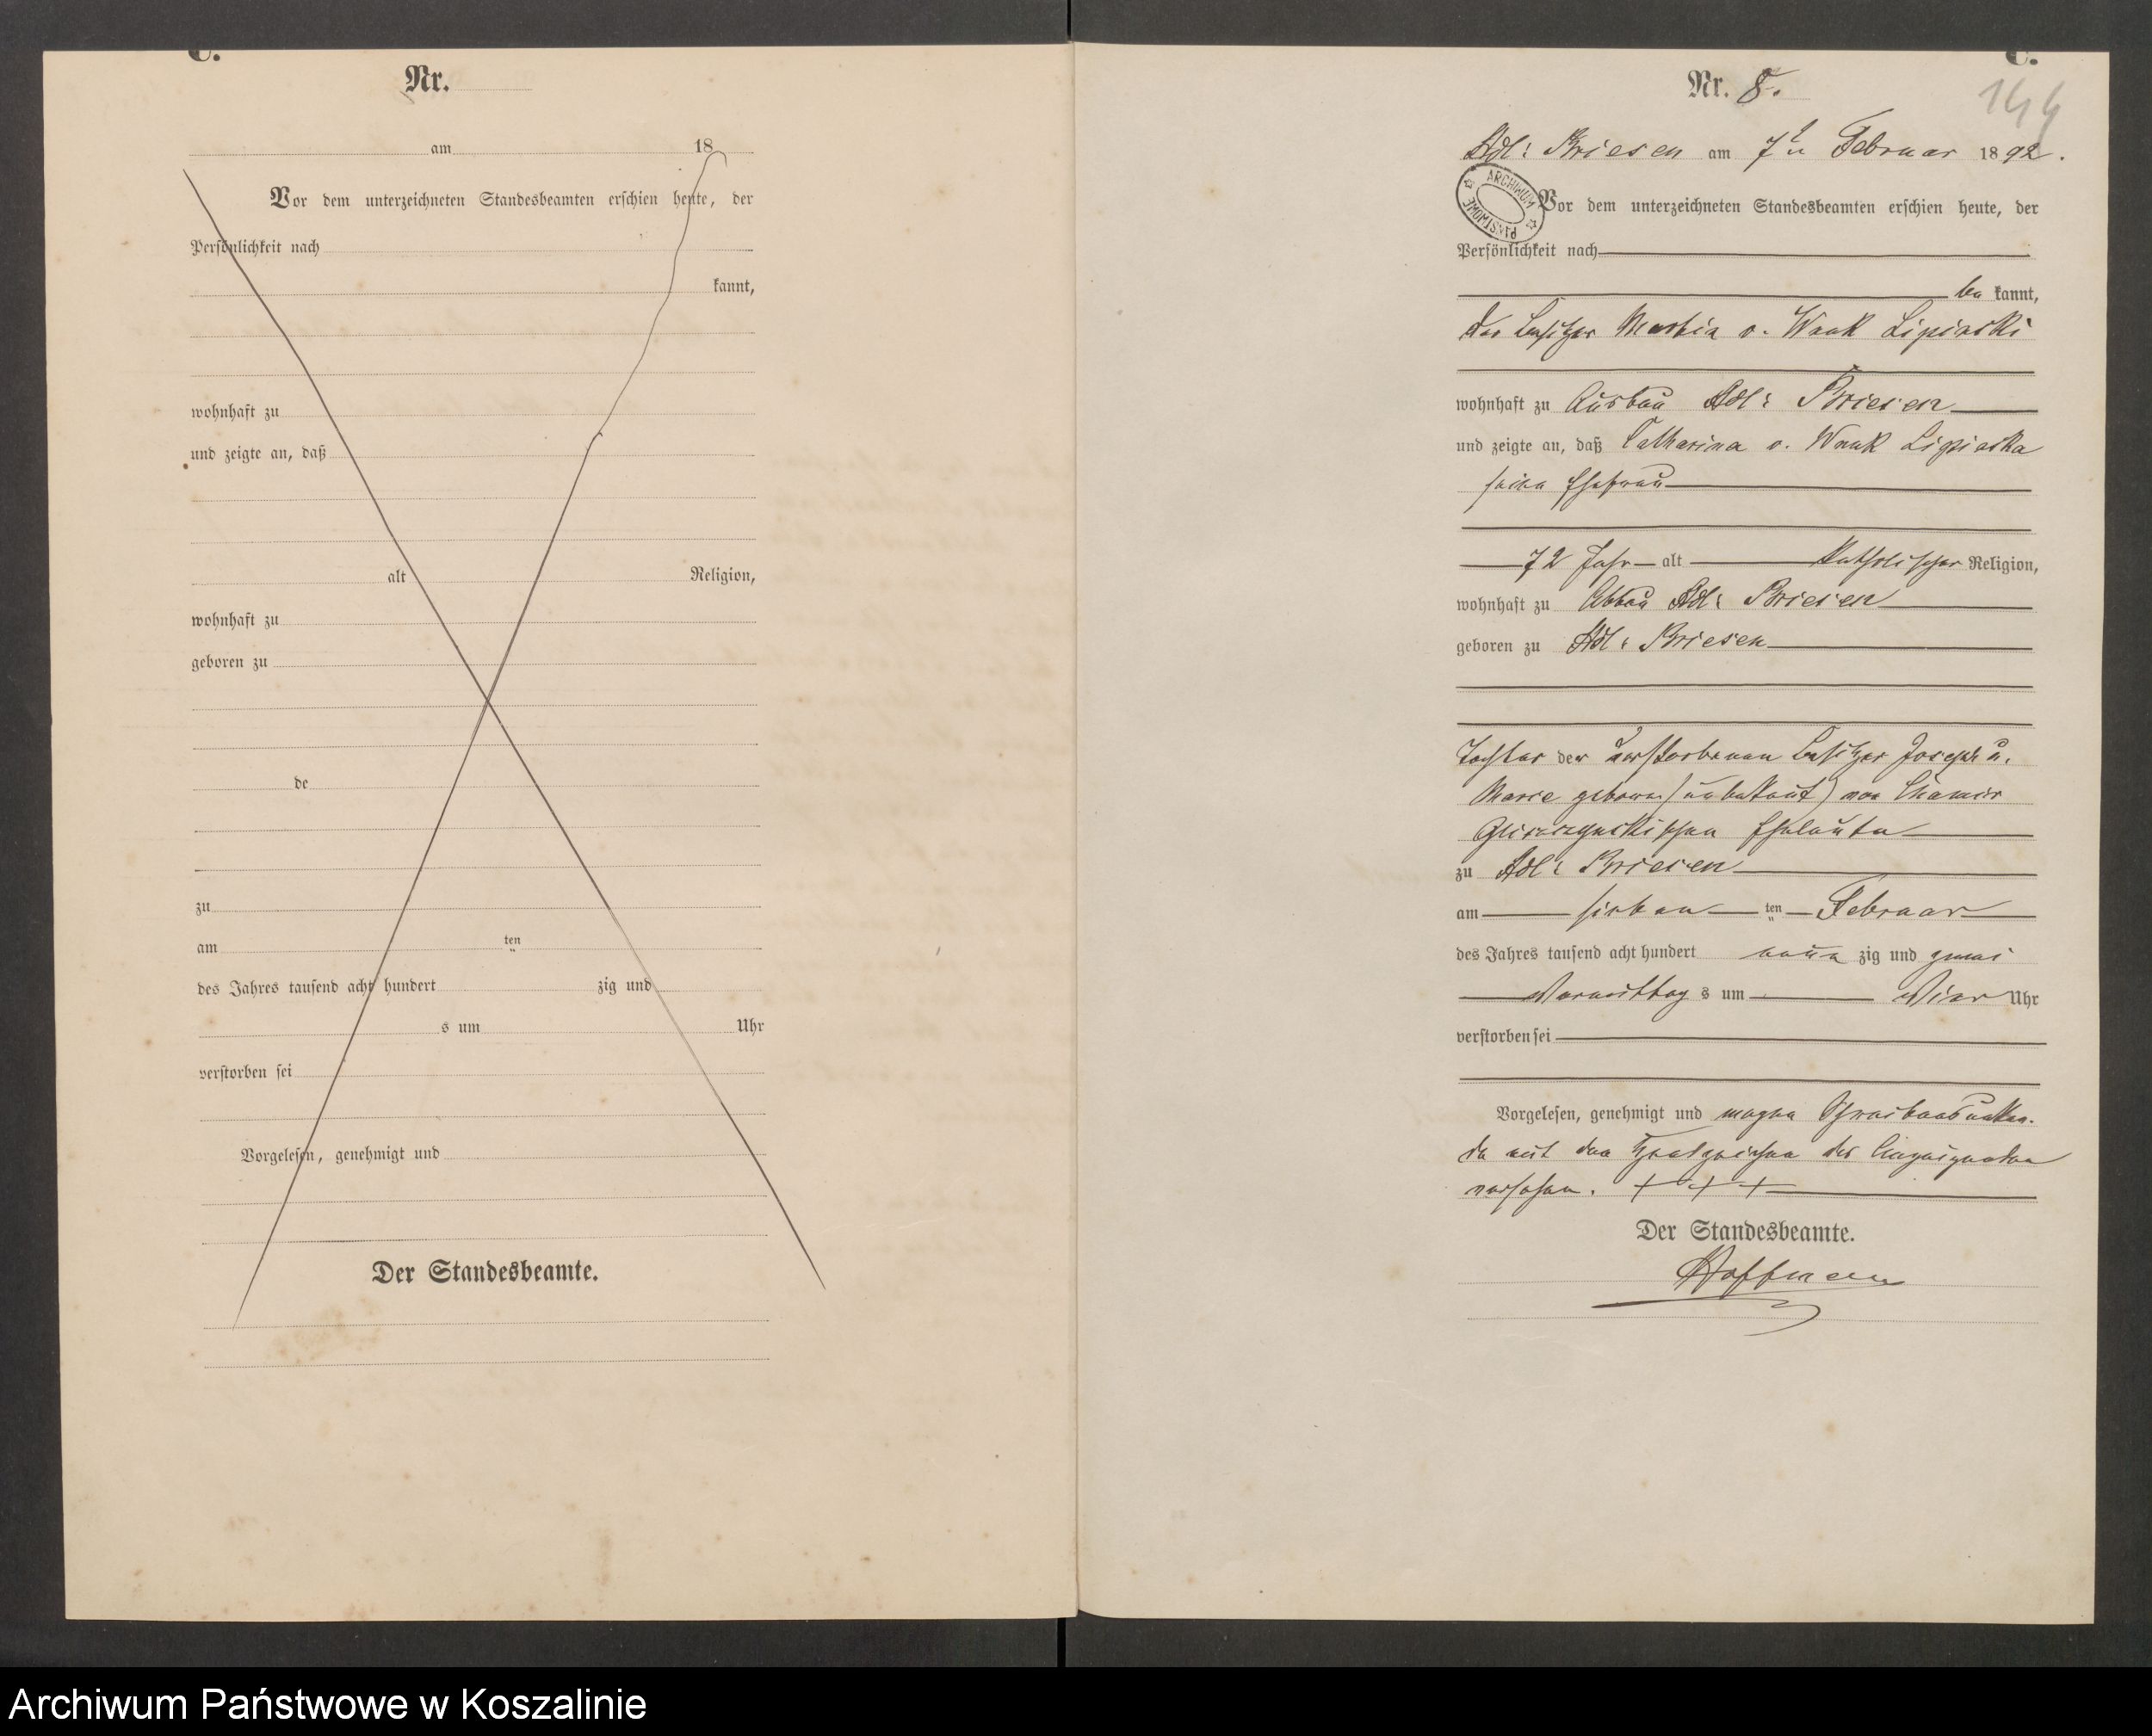 C.
Nr.
am 18
Vor dem unterzeichneten Standesbeamten erschien heute, der
Persönlichkeit nach
kannt,
wohnhaft zu
und zeigte an, daß
alt Religion,
wohnhaft zu
geboren zu
de
zu
am ten
des Jahres tausend acht hundert zig und
s um Uhr
verstorben sei
Vorgelesen, genehmigt und
Der Standesbeamte.
C.
Nr. 8.
144
Adl: Briesen am 7t Februar 1892.
ARCHIWUM PAŃSTWOWE
Vor dem unterzeichneten Standesbeamten erschien heute, der
Persönlichkeit nach
be kannt,
der Besitzer Martin v. Wnuk Lipinski
wohnhaft zu Ausbau Adl: Briesen
und zeigte an, daß Catharina v. Wnuk Lipinska
seine Ehefrau
72 Jahr alt Katholischer Religion,
wohnhaft zu Abbau Adl: Briesen
geboren zu Adl: Briesen
Tochter der verstorbenen Besitzer Joseph u.
Marie geboren (unbekant) von Chamir
Eheleute
zu Adl: Briesen
am sieben ten Februar
des Jahres tausend acht hundert neun zig und zwei
Vormittag s um Vier Uhr
verstorben sei
Vorgelesen, genehmigt und wegen Schreibensunkun-
de mit den des
versehen. + + +
Der Standesbeamte.
Hoffmann
Archiwum Państwowe w Koszalinie